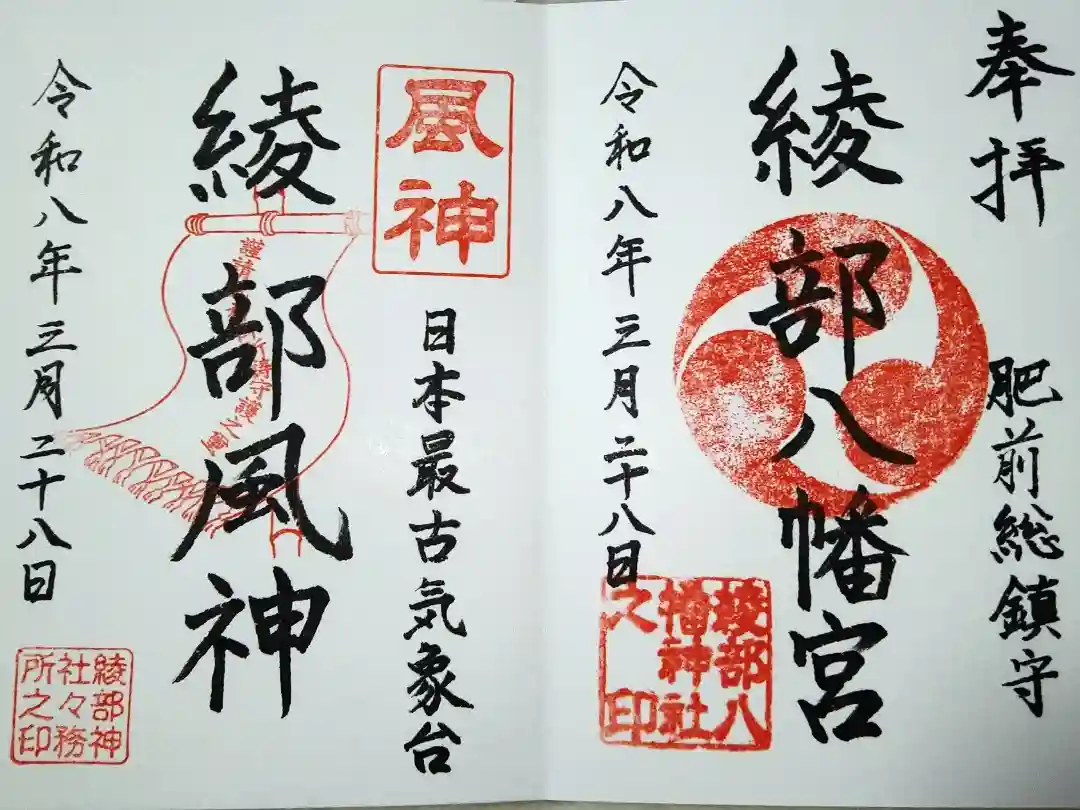 奉拝
肥前総鎮守
綾部八幡宮
綾部八
幡神社
之印
令和八年三月二十八日
風神
日本最古気象台
綾部風神
謹請
守護之
令和八年三月二十八日
綾部神
社々務
所之印